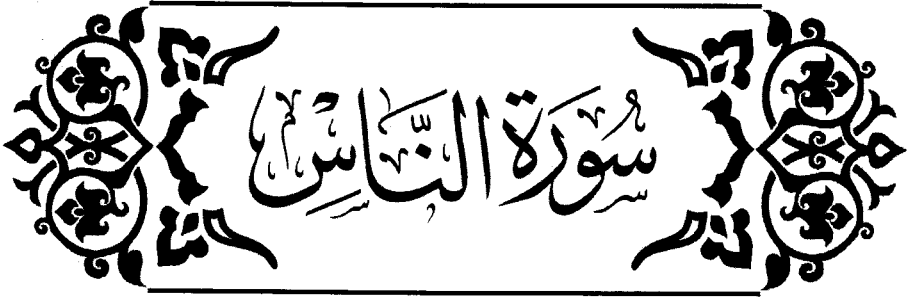 سُورَةُ النَّاسِ